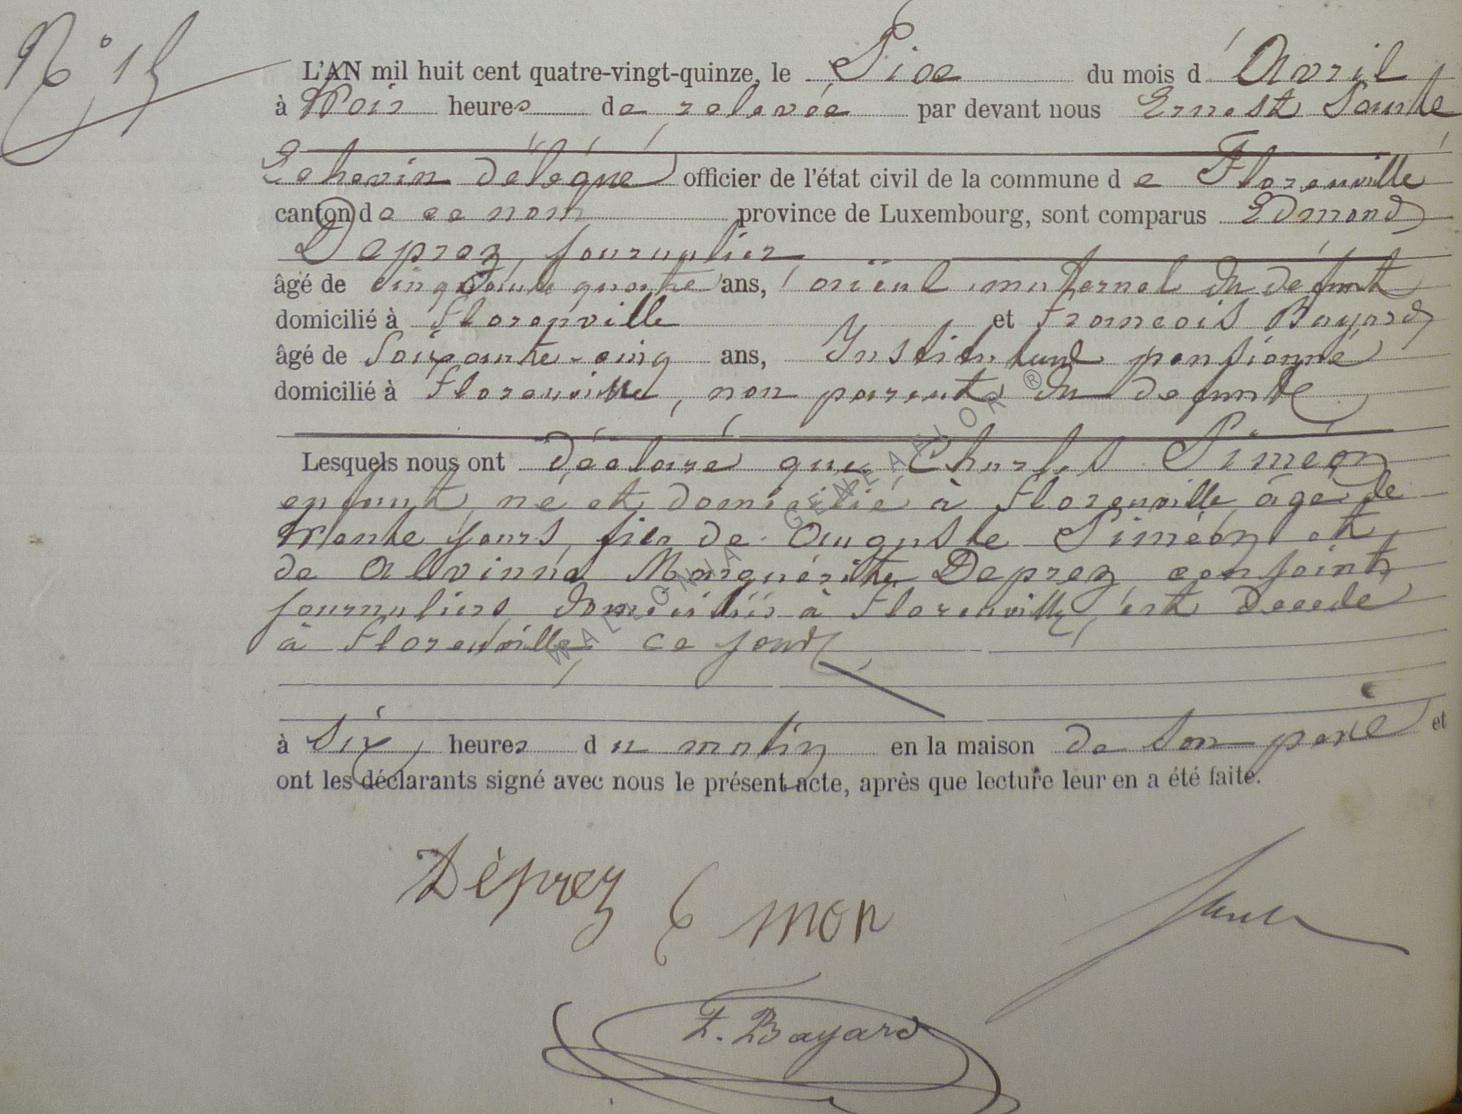 N° 15
L'AN mil huit cent quatre-vingt-quinze, le Six du mois d'Avril
à trois heures de relevée par devant nous Ernest
Echevin délégué officier de l'état civil de la commune de Florenville
canton de ce nom province de Luxembourg, sont comparus Edmond
Deprez, journalier
âgé de cinquante quatre ans, aïeul maternel du défunt
domicilié à Florenville et François Bayard
âgé de Soixante-cinq ans, Instituteur pensionné
domicilié à Florenville, non parent du defunt
Lesquels nous ont déclaré que Charles Siméon
enfant, né et domicilié à Florenville, âgé de
trente jours, fils de Auguste Siméon et
de Alvinna Marguérite Deprez conjoints
journaliers, domiciliés à Florenville, est decedé
à Florenville ce jour
à six heures du matin en la maison de son père et
ont les déclarants signé avec nous le présent acte, après que lecture leur en a été faite.
Déprez E mon
F. Bayard
WALLONIA GENEALOR ®